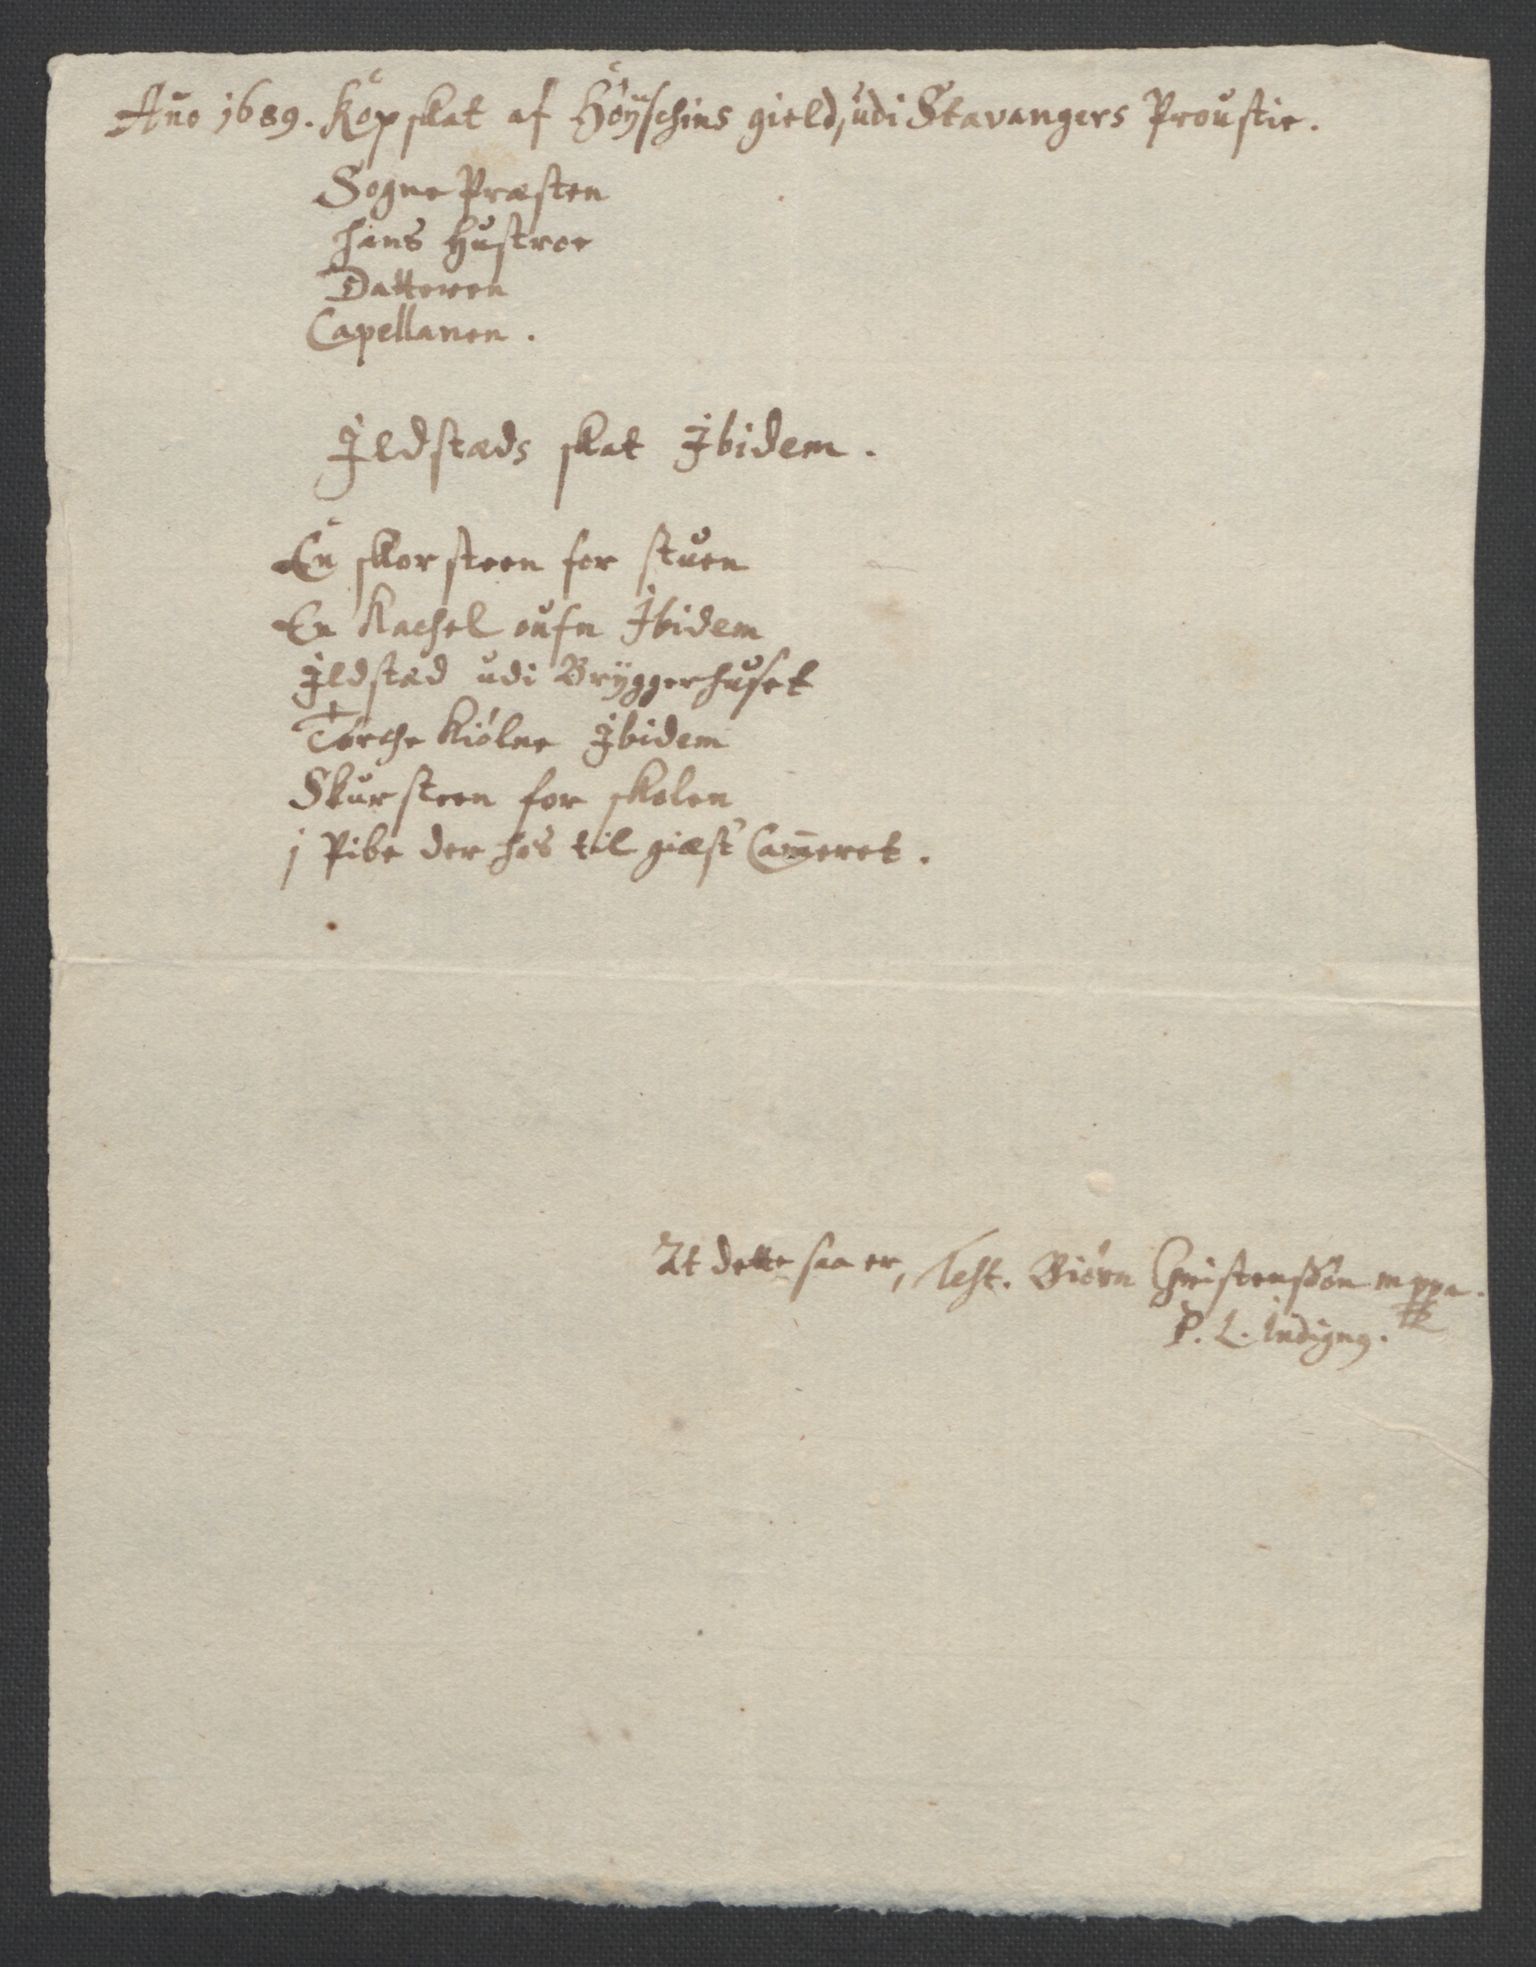 Año 1689. Kopskat af Höyschins gield, udi Stavangers Proustie.
Sogne Præsten
hans Hustroe
Datteren
Capellanen.
Ildstæds skat Ibidem.
En skorsteen for stuen
En Kachel oufn Ibidem
Ildstæd udi Brÿggerhuset
Tørche Kiølne Ibidem
Skursteen for skolen
j Pibe der hos til giæst Cam̄eret.
At dette saa er, Test. Biörn Christenssön mppa.
P. L. Indigny.